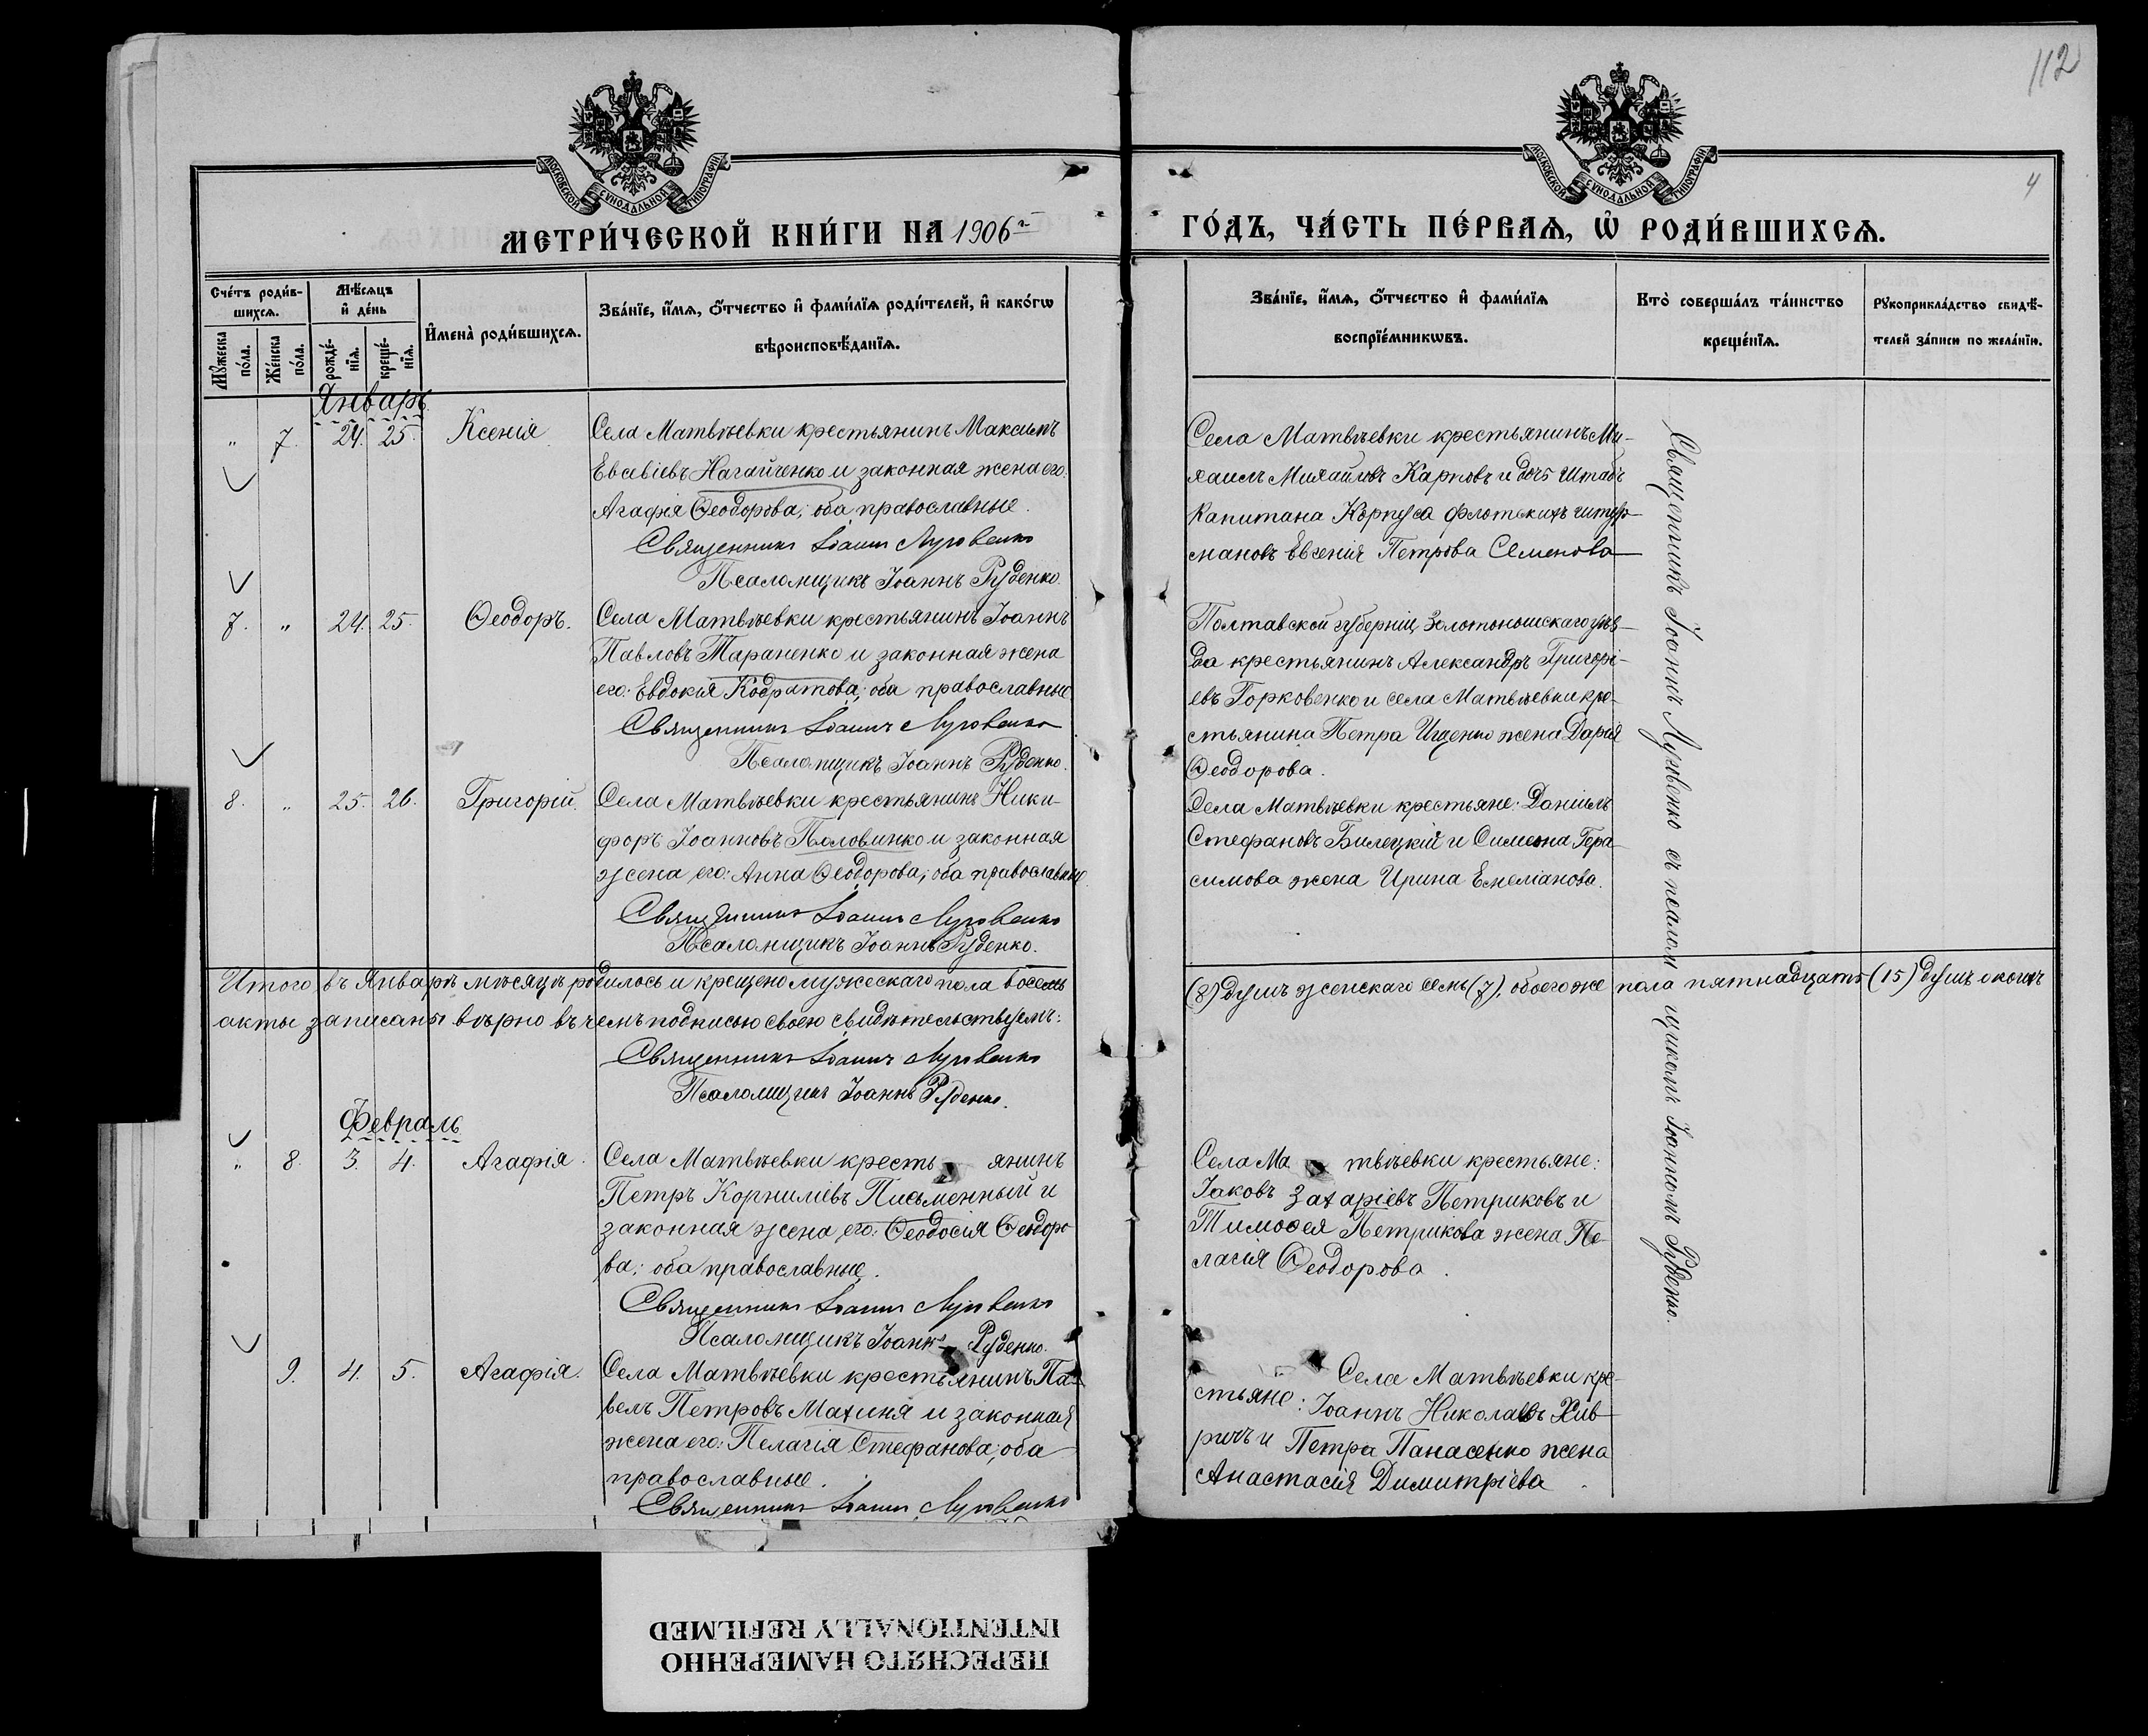 112
4
МОСКОВСКОЙ СУНОДАЛЬНОЙ ТИПОГРАФІИ
МОСКОВСКОЙ СУНОДАЛЬНОЙ ТИПОГРАФІИ
МЕТРИ́ЧЕСКОЙ КНИ́ГИ НА 1906 г.
ГО́ДЪ, ЧА́СТЬ ПЕ́РВАѦ, Ѡ҆ РОДИ́ВШИХСѦ.
Сче́тъ роди́в-
шихсѧ.
Мꙋжеска
по́ла.
Же́нска
по́ла.
Мѣ́сѧцъ
и҆ де́нь
рожде́-
нїѧ.
креще́-
нїѧ.
И҆мена̀ роди́вшихсѧ.
Зва́нїе, и҆́мѧ, ѻ҆́тчество и҆ фами́лїѧ роди́телей, и҆ како́гѡ
вѣроисповѣ́данїѧ.
Зва́нїе, и҆́мѧ, ѻ҆́тчество и҆ фами́лїѧ
воспрїе́мникѡвъ.
Кто̀ соверша́лъ та́инство
креще́нїѧ.
Рꙋкоприкла́дство свидѣ́-
телей за́писи по жела́нїю.
Январь
„ 7. 24. 25. Ксенія
Села Матвѣевки крестьянинъ Максимъ
Евсевіевъ Нагайченко и законная жена его:
Агафія Ѳеодорова; оба православные.
Священникъ Іоаннъ Луговенко
Псаломщикъ Іоаннъ Руденко.
Села Матвѣевки крестьянинъ Ми-
хаилъ Михайловъ Карповъ и дочь Штабъ
Капитана Корпуса флотскихъ штур-
мановъ Евгенія Петрова Семенова
7. „ 24. 25. Ѳеодоръ.
Села Матвѣевки крестьянинъ Іоаннъ
Павловъ Тараненко и законная жена
его: Евдокія Кодратова; оба православные
Священникъ Іоаннъ Луговенко
Псаломщикъ Іоаннъ Руденко.
Полтавской губерніи Золотоношскаго уѣз-
да крестьянинъ Александръ Григорі-
евъ Горковенко и села Матвѣевки кре-
стьянина Петра Ищенко жена Дарія
Ѳеодорова.
8. „ 25. 26. Григорій.
Села Матвѣевки крестьянинъ Ники-
форъ Іоанновъ Половинко и законная
жена его: Анна Ѳеодорова; оба православные.
Священникъ Іоаннъ Луговенко
Псаломщикъ Іоаннъ Руденко.
Села Матвѣевки крестьяне: Даніилъ
Стефановъ Билецкій и Симеона Гера-
симова жена Ирина Емеліанова.
Итого въ Январѣ мѣсяцѣ родилось и крещено мужескаго пола восемь
(8) душъ женскаго семь (7), обоего же пола пятнадцать (15) душъ о коихъ
акты записаны вѣрно въ чемъ подписью своею свидѣтельствуемъ:
Священникъ Іоаннъ Луговенко
Псаломщикъ Іоаннъ Руденко.
Февраль
„ 8. 3. 4. Агафія.
Села Матвѣевки кресть янинъ
Петръ Корниліевъ Письменный и
законная жена его: Ѳеодосія Ѳеодоро
ва; оба православные.
Священникъ Іоаннъ Луговенко
Псаломщикъ Іоаннъ Руденко.
Села Ма твѣевки крестьяне:
Іаковъ Захаріевъ Петриковъ и
Тимоѳея Петрикова жена Пе-
лагія Ѳеодорова.
9. 4. 5. Агафія.
Села Матвѣевки крестьянинъ Па-
велъ Петровъ Махиня и законная
жена его: Пелагія Стефанова; оба
православные.
Священникъ Іоаннъ Луговенко
Села Матвѣевки кре-
стьяне: Іоаннъ Николаевъ Хив-
ричъ и Петра Панасенко жена
Анастасія Димитріева.
Священникъ Іоаннъ Луговенко съ псалом щикомъ Іоанномъ Руденко.
ПЕРЕСНЯТО НАМЕРЕННО
INTENTIONALLY REFILMED